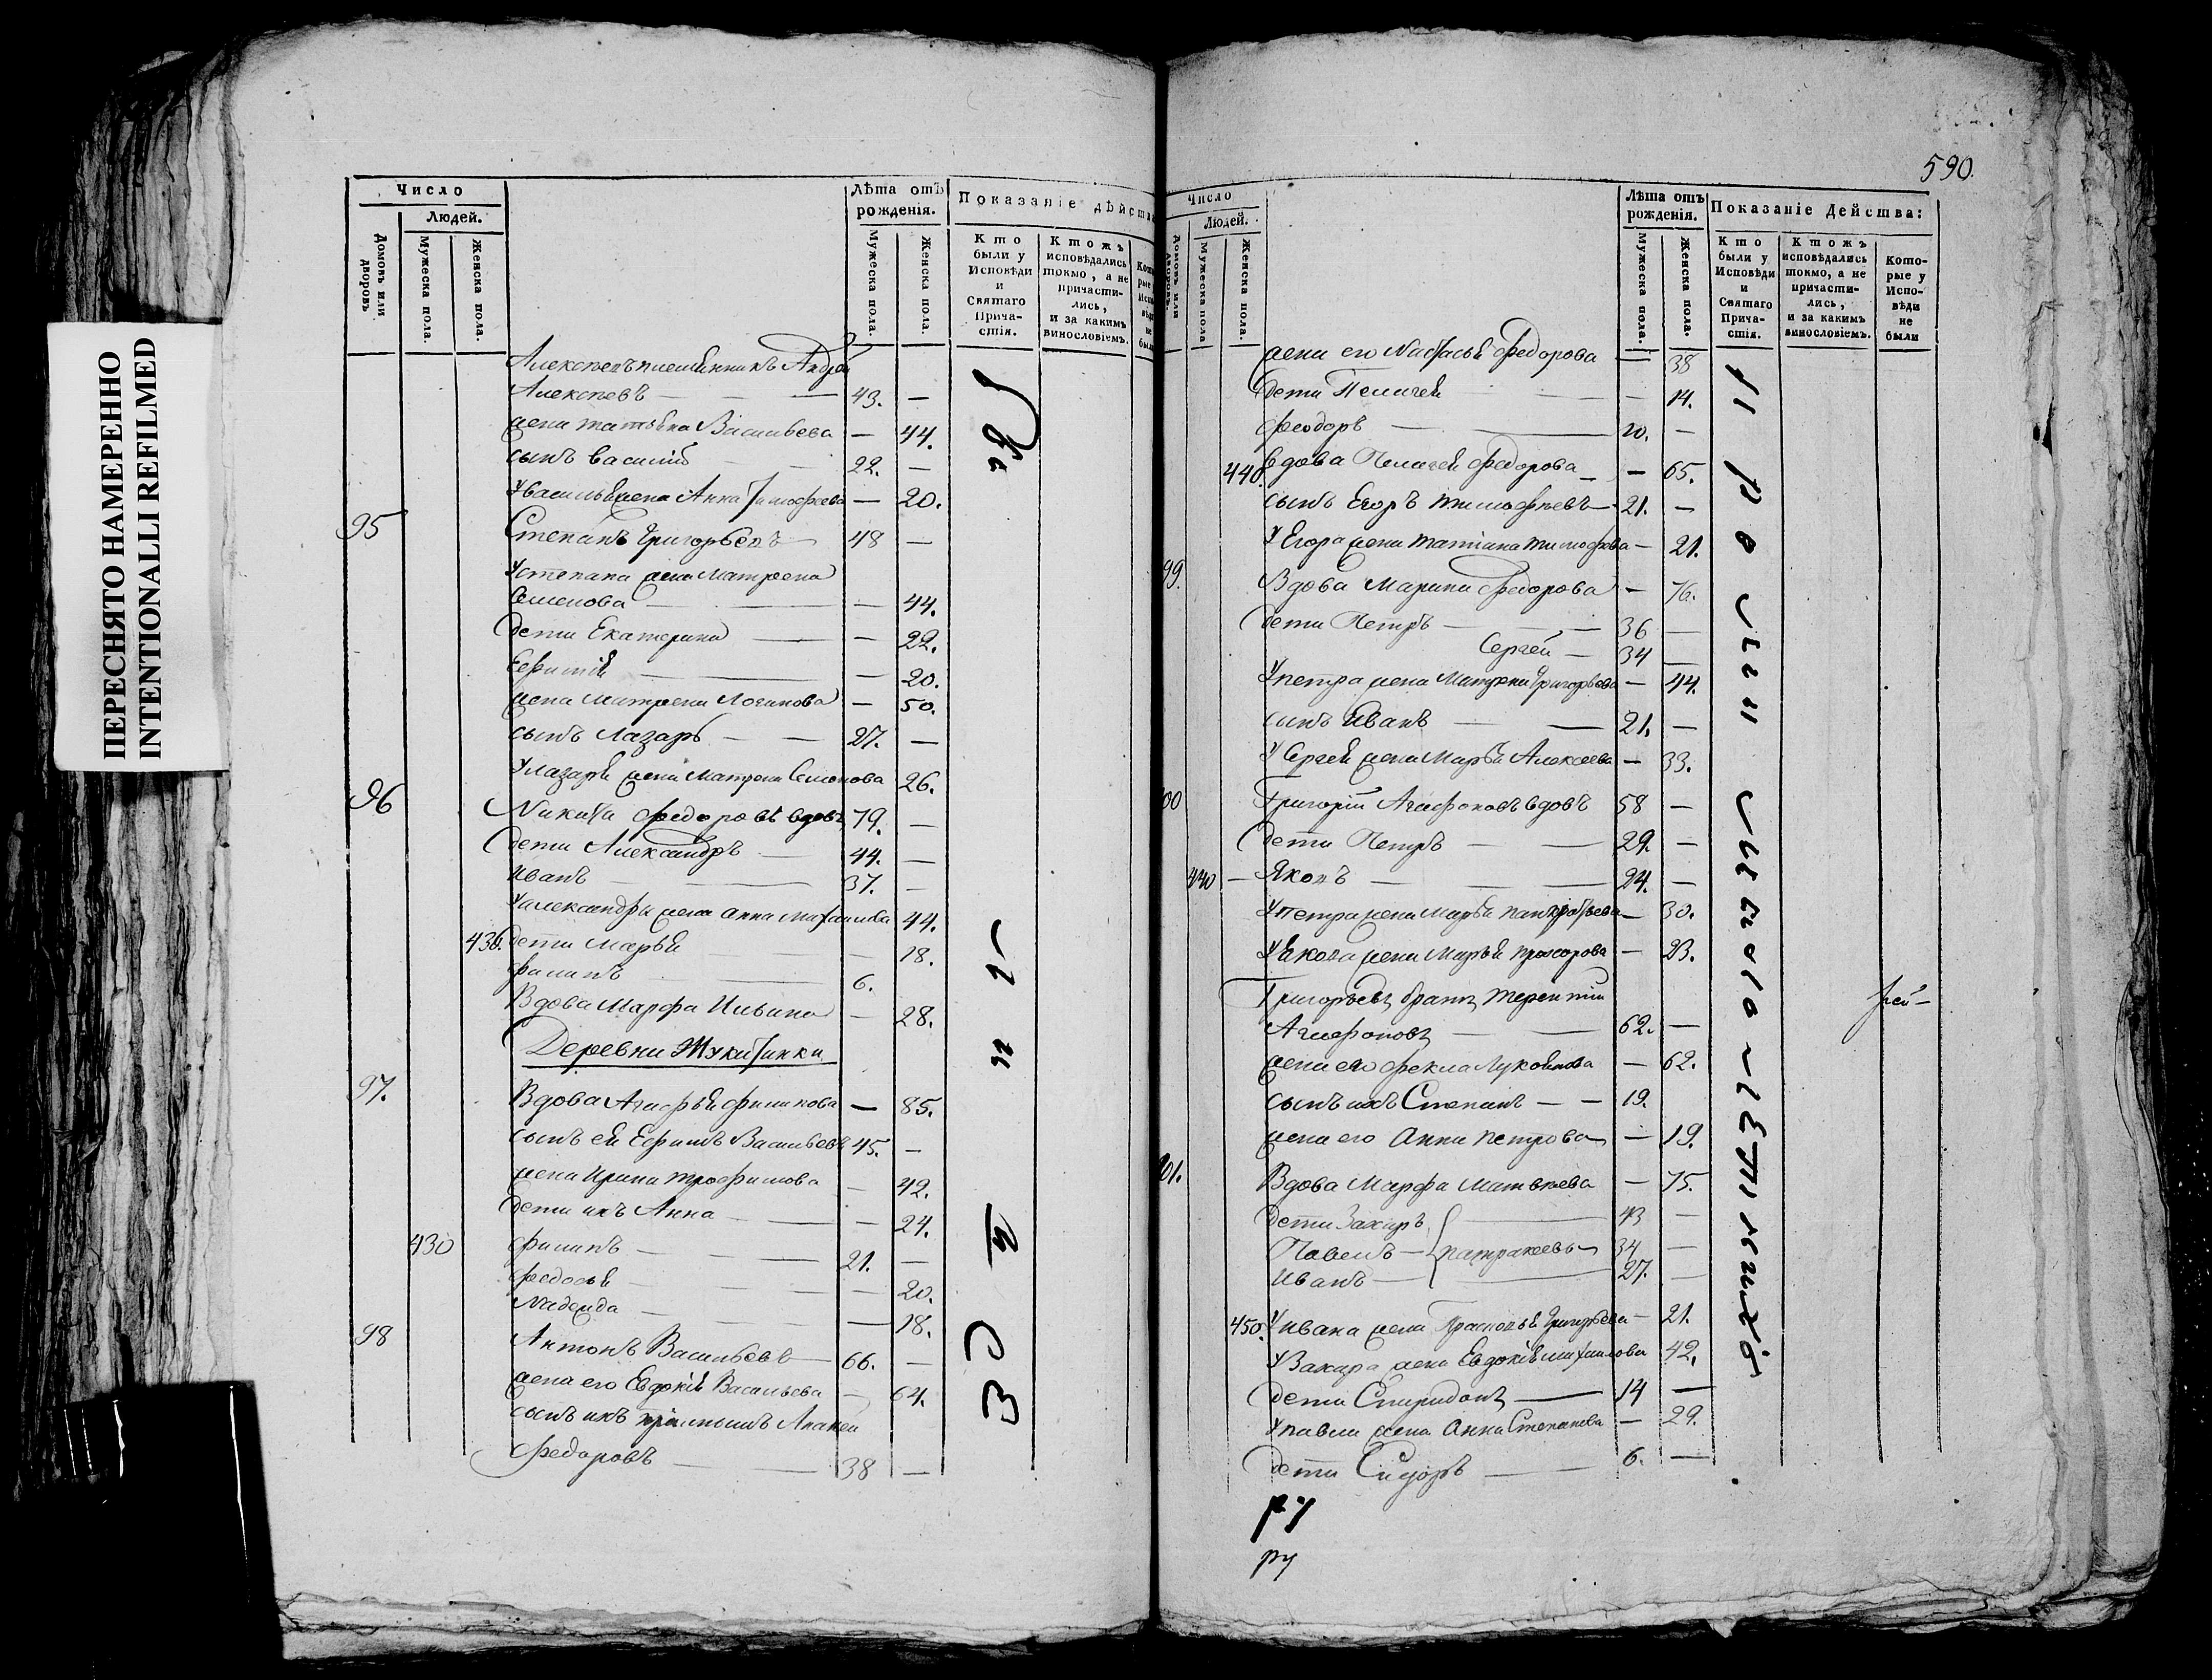 ПЕРЕСНЯТО НАМЕРЕННО
INTENTIONALLI REFILMED
Число
Людей.
Домовъ или дворовъ
Мужеска пола.
Женска пола.
Лѣта отъ рожденія.
Мужеска пола.
Женска пола.
Показаніе дѣйства
Кто были у Исповѣди и Святаго Прича-стія.
Ктожъ исповѣдались токмо, а не причасти-лись, и за какимъ винословіемъ.
Алексѣевъ племянникъ Андрей
Алексѣевъ — 43. —
жена татьяна Васильева — 44.
сынъ василій 22. —
У василья жена Анна Тимофеева — 20.
95 Степанъ Григорьевъ — 48 —
У степана жена Матрена
Семенова — 44.
дети Екатерина — 22.
Ефимія — 20.
жена матрена Логинова — 50.
сынъ Лазарь — 27. —
У лазаря жена Матрена Семенова 26.
96 Никита Федоровъ вдовъ 79. —
дети Александръ — 44. —
Иванъ — 37. —
У александра жена анна Михаилова 44.
436. дети Марья — 18.
филипъ — 6.
Вдова Марфа Ильина — 28.
Деревни Жукитинки
97. Вдова Агафья филипова — 85.
сынъ ея Ефимъ Васильевъ 45. —
жена Ирина трофимова — 42.
дети ихъ Анна — 24.
430 филипъ — 21. —
федосья — 20.
Надежда — 18.
98 Антонъ Васильевъ — 66. —
жена его Евдокія Васильева — 64.
сынъ ихъ пріимышъ Ананій
Федоровъ — 38 —
590.
Число
Людей.
Домовъ или дворовъ.
Мужеска пола
Женска пола.
Лѣта отъ рожденія.
Мужеска пола.
Женска пола.
Показаніе Действа:
Кто были у Исповѣди и Святаго Прича-стія.
Ктожъ исповѣдались токмо, а не причасти-лись, и за какимъ винословіемъ.
Кото-рые у Испо-вѣди не были
жена его Настасья Федорова — 38
дети Пелагея — 14.
феодоръ — 20. —
440. вдова Пелагея федорова — 65.
сынъ Егоръ тимофѣевъ — 21. —
У Егора жена татіана тимофеева — 21.
99. Вдова Марина федорова — 76.
дети Петръ — 36 —
Сергей — 34 —
У петра жена Матрена Григорьева — 44.
сынъ Иванъ — 21. —
У Сергея жена Марья Алексеева — 33.
00 Григорій Агафоновъ вдовъ 58 —
дети Петръ — 29. —
440 — Яковъ — 24. —
У петра жена Марья панкратьева — 30.
У якова жена Марья прохорова — 23.
Григорьевъ братъ терентій
Агафоновъ — 62. —
жена его фекла Лукоянова — 62.
сынъ ихъ Степанъ — 19.
жена его Анна петрова — 19.
01. Вдова Марфа Матвѣева — 75.
дети Захаръ — 43 —
Павелъ — патракеевы 34 —
Иванъ — 27. —
450. У ивана жена Прасковья Григорьева — 21.
У Захара жена Евдокія михаилова 42.
дети Спиридонъ — 14 —
У павла жена Анна Степанова — 29.
дети Сидоръ — 6. —
ру
ру